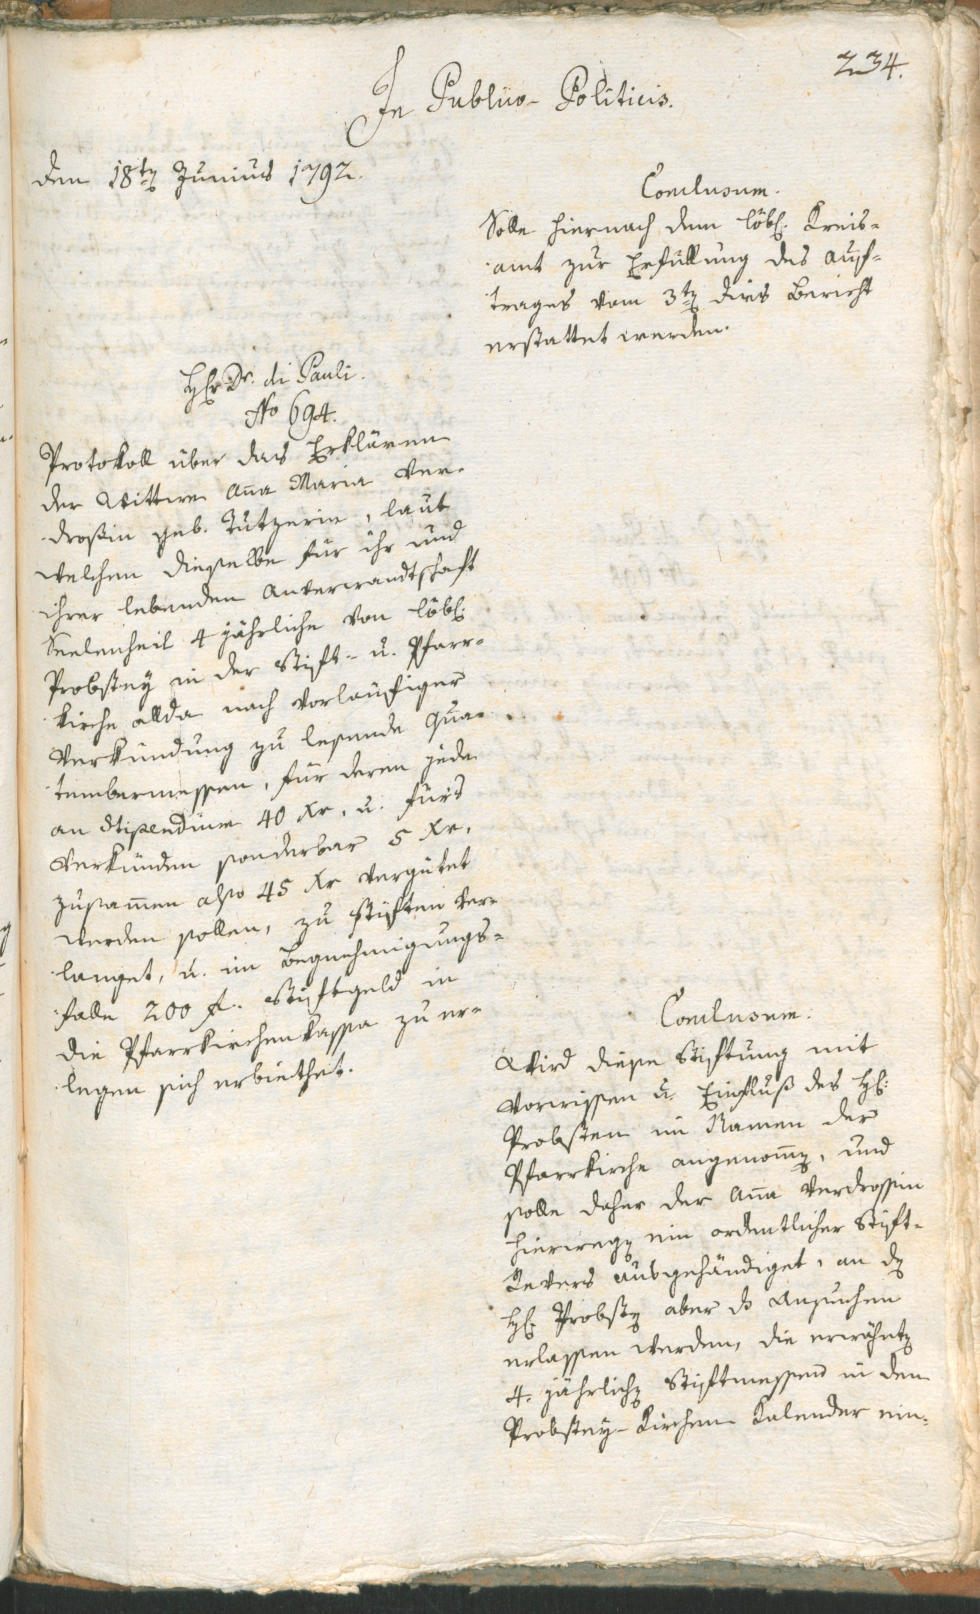 234.
In Publico-Politicis.
den 18ten Junius 1792.
Conclusum.
Solle hiernach dem löbl. Kreis-
amt zur Erfüllung des Auf-
trages vom 3ten dies Bericht
erstattet werden.
Hr Dr. di Pauli.
No 694.
Protokoll über das Erklären
der Wittwe Anna Maria Ver-
drossin geb. Tutzerin, laut
welchem dieselbe für ihr und
ihrer lebenden Anverwandtschaft
Seelenheil 4 jährliche von löbl.
Probstey in der Stift- u. Pfarr-
kirche allda nach vorläufiger
Verkündung zu lesende Qua-
tembermessen, für deren jede
an Stipendium 40 Xr, u. fürs
Verkünden sonderbar 5 Xr,
zusammen also 45 Xr vergütet
werden sollen, zu stiften ver-
langet, u. im Begnehmigungs-
falle 200 f. Stiftgeld in
die Pfarrkirchenkassa zu er-
legen sich erbiethet.
Conclusum.
Wird diese Stiftung mit
Vorwissen u. Einfluß des H:
Probsten im Namen der
Pfarrkirche angenommen, und
solle daher der Anna Verdrossin
hierwegen ein ordentlicher Stift-
Revers ausgehändiget, an den
H: Probsten aber das Ansuchen
erlassen werden, die erwähnten
4. jährlichen Stiftmessen in den
Probstey-Kirchen Kalender ein-